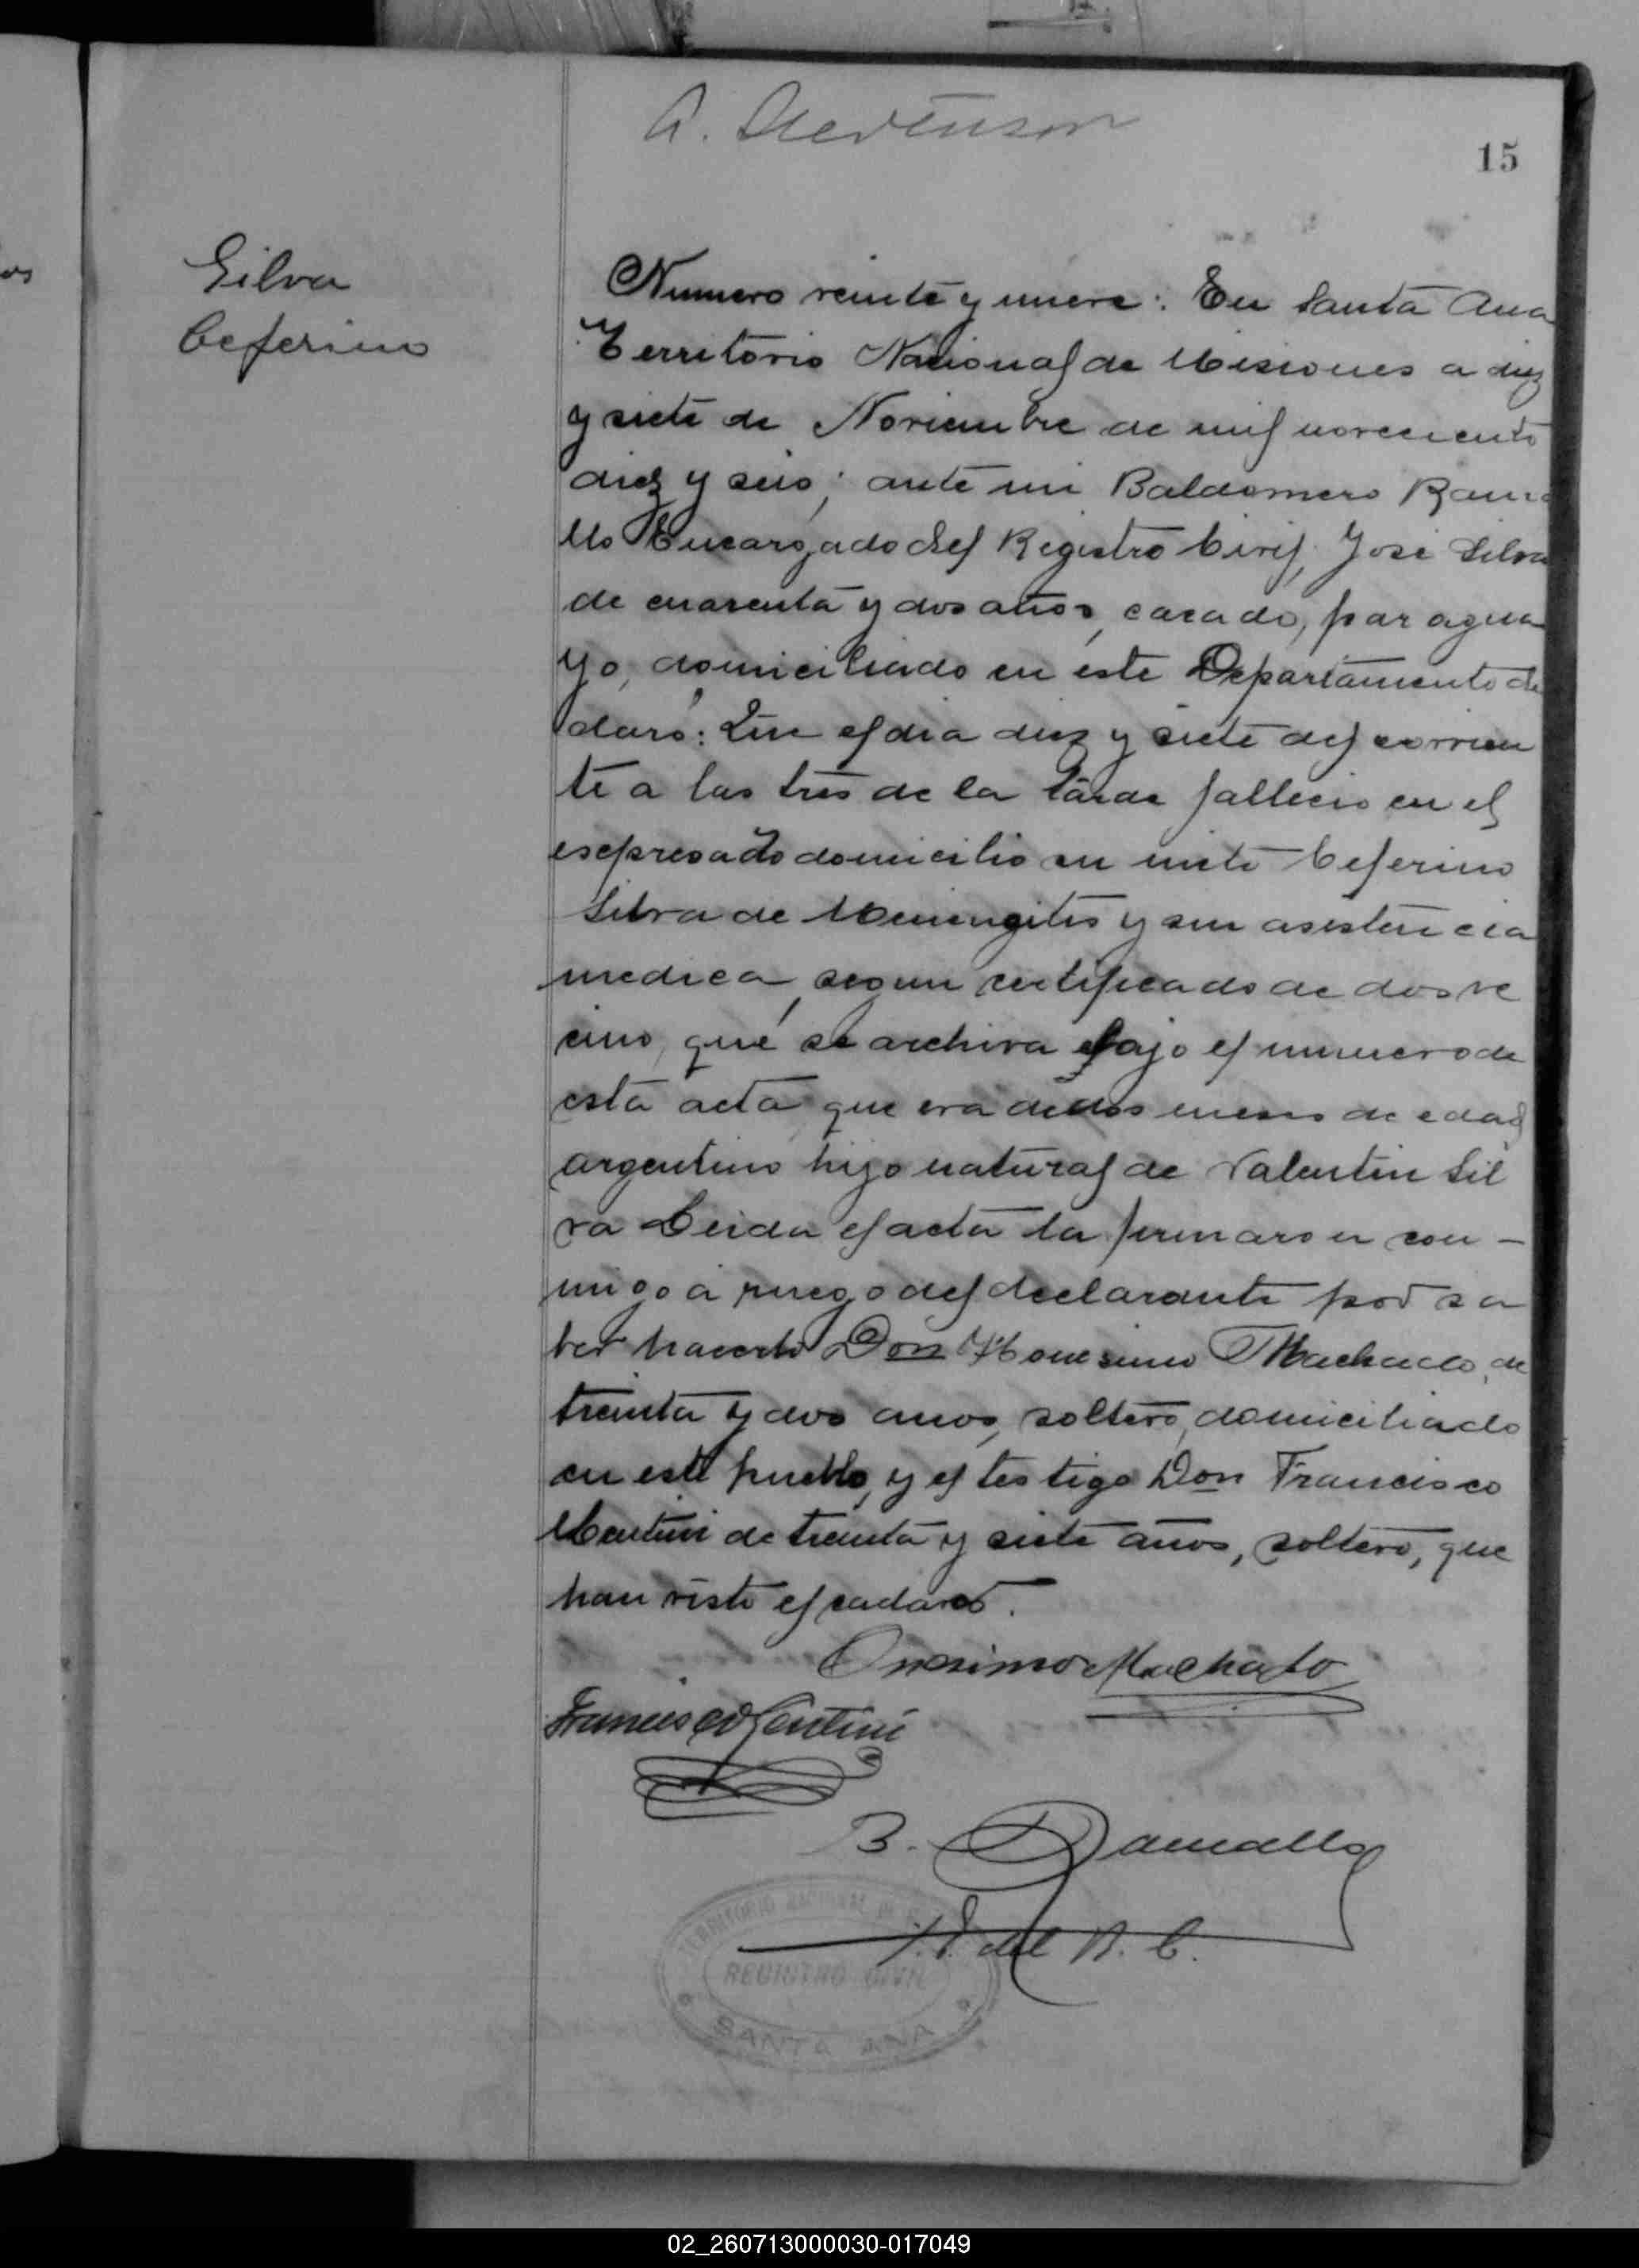 A. Stevenson
15
Silva
Ceferino
Numero veinte y nueve: En Santa Ana
Territorio Nacional de Misiones a diez
y siete de Noviembre de mil novecientos
diez y seis; ante mi Baldomero Rama
llo Encargado del Registro Civil, José Silva
de cuarenta y dos años, casado, paragua
yo, domiciliado en este Departamento de
claró: Que el dia diez y siete del corrien
te a las tres de la tarde fallecio en el
espresado domicilio su nieto Ceferino
Silva de Meningitis y sin asistencia
medica, segun certificado de dos ve
cino, que se archiva bajo el numero de
esta acta que era de dos meses de edad
argentino hijo natural de Valentin Sil
va Leida el acta la firmaron con-
migo a ruego del declarante por sa
ber hacerlo Don Honesimo Machado, de
treinta y dos anos, soltero, domiciliado
en este pueblo, y el testigo Don Francisco
Centini de treinta y siete años, soltero, que
han visto el cadaver.
Onosimo Machado
Francisco Centini
B. Ramallo
J. E. del R. C.
TERRITORIO NACIONAL DE
REGISTRO CIVIL
SANTA ANA
02_260713000030-017049